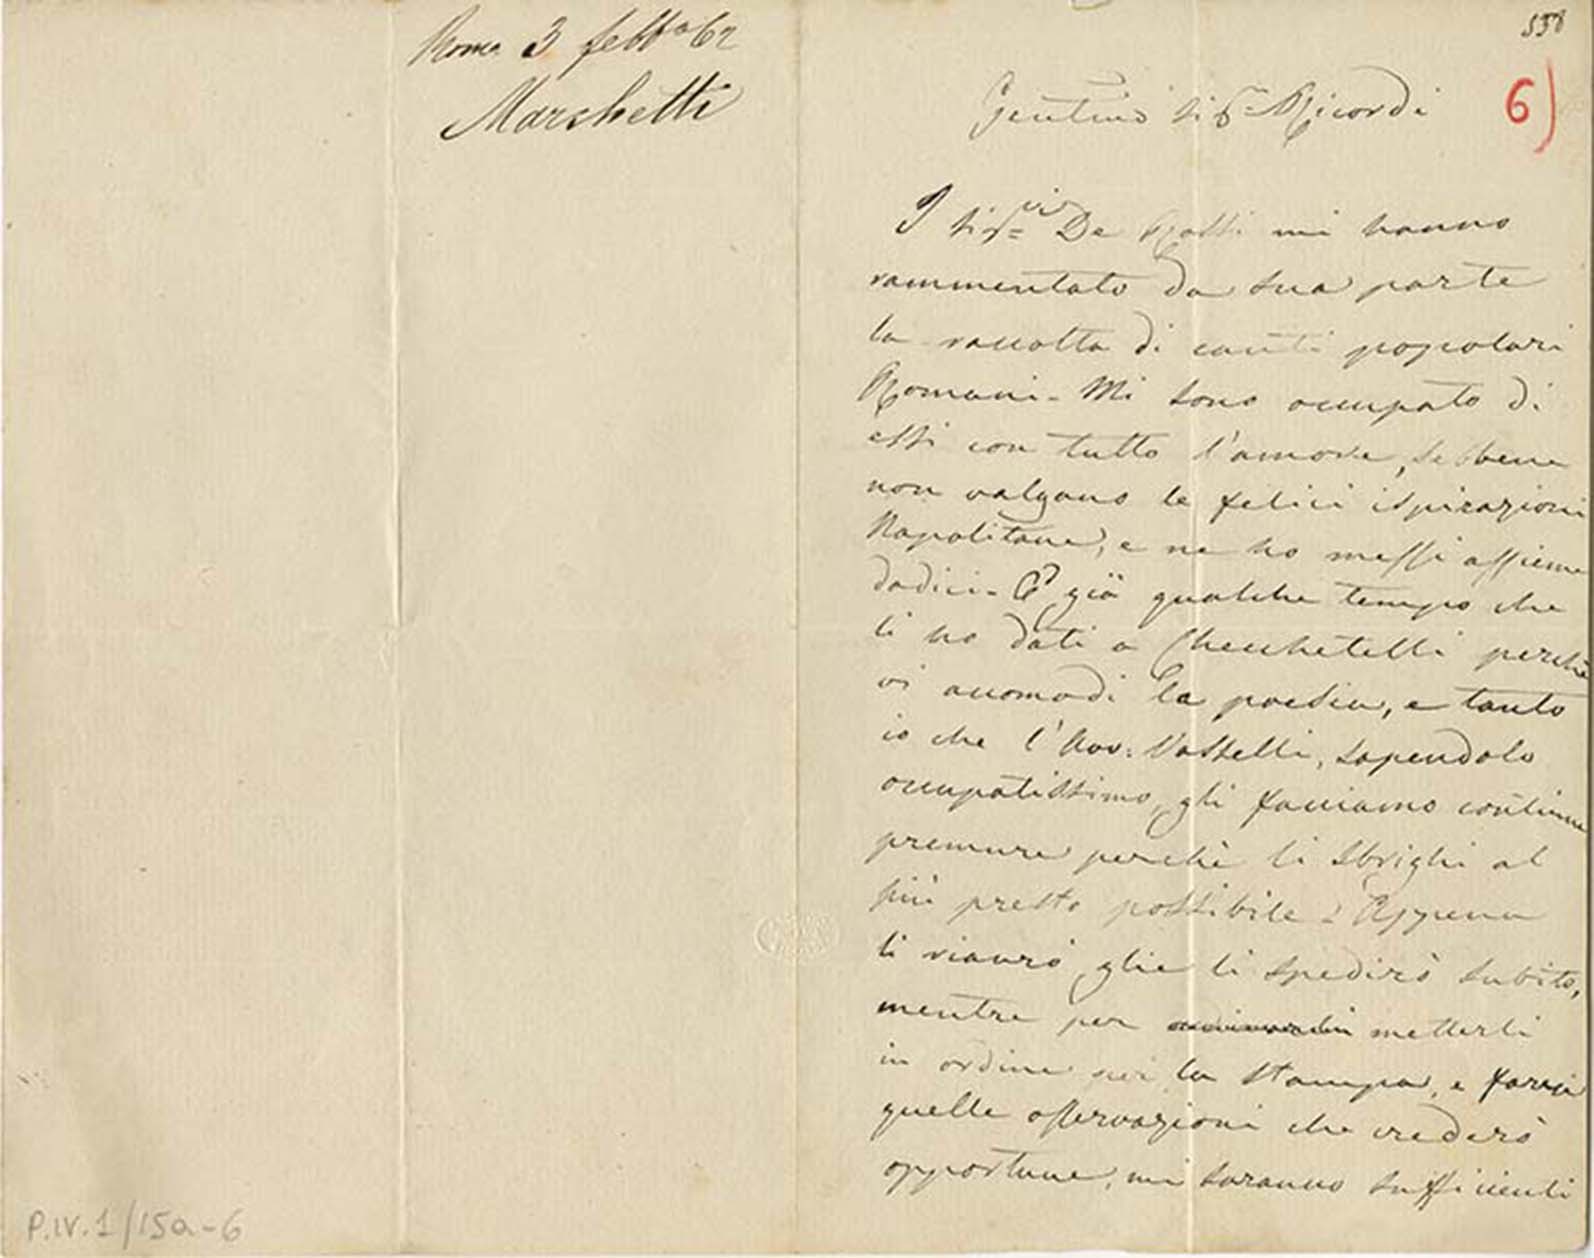 Roma 3 febb.º 62
Marchetti
538
6)
Gentmo Sigr Ricordi
I Sigri De Rossi mi hanno
rammentato da sua parte
la raccolta di canti popolari
Romani - Mi sono occupato di
essi con tutto l'amore, sebbene
non valgano le felici ispirazioni
Napolitane, e ne ho messi assieme
dodici - È già qualche tempo che
li ho dati a Checchetelli perchè
vi accomodi la poesia, e tanto
io che l'Avv: Vasselli, sapendolo
occupatissimo, gli facciamo continue
premure perchè li sbrighi al
più presto possibile - Appena
li riavrò glie li spedirò subito,
mentre per metterli
in ordine per la stampa, e farvi
quelle osservazioni che crederò
opportune, mi saranno sufficienti
P.IV.1/15a-6